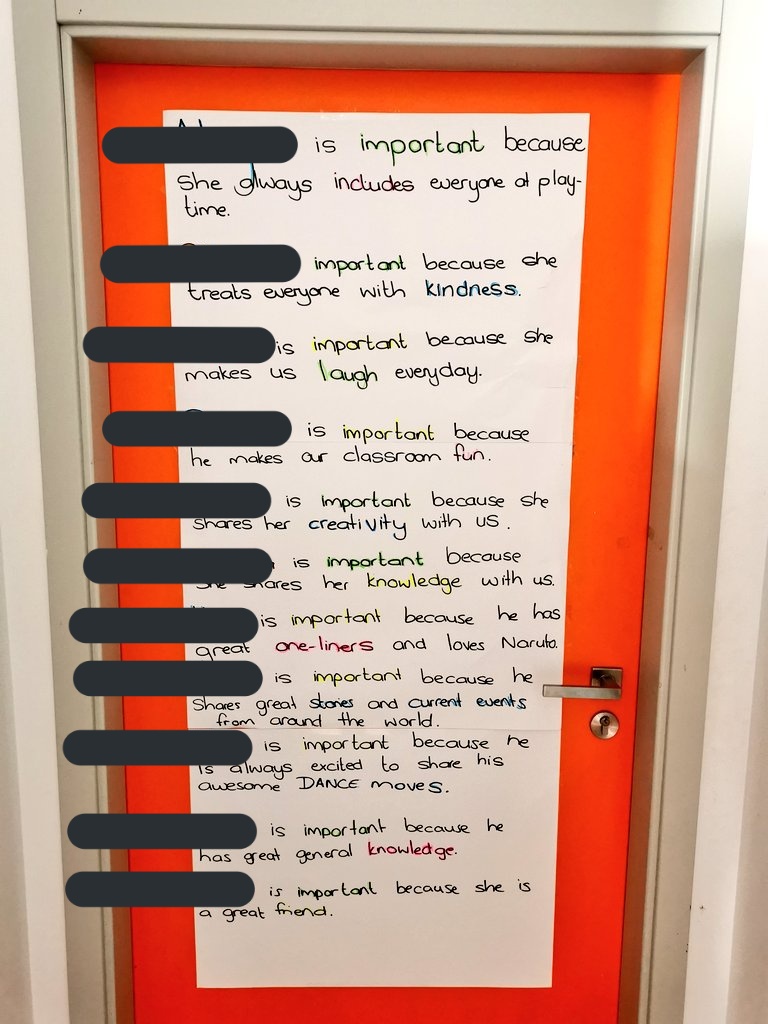 is important because
She always includes everyone at play-
time.
important because she
treats everyone with kindness.
is important because she
makes us laugh everyday.
is important because
he makes our classroom fun.
is important because she
shares her creativity with us.
is important because
She shares her knowledge with us.
is important because he has
great one-liners and loves Naruto.
is important because he
Shares great stories and current events
from around the world.
is important because he
is always excited to share his
awesome DANCE moves.
is important because he
has great general knowledge.
is important because she is
a great friend.